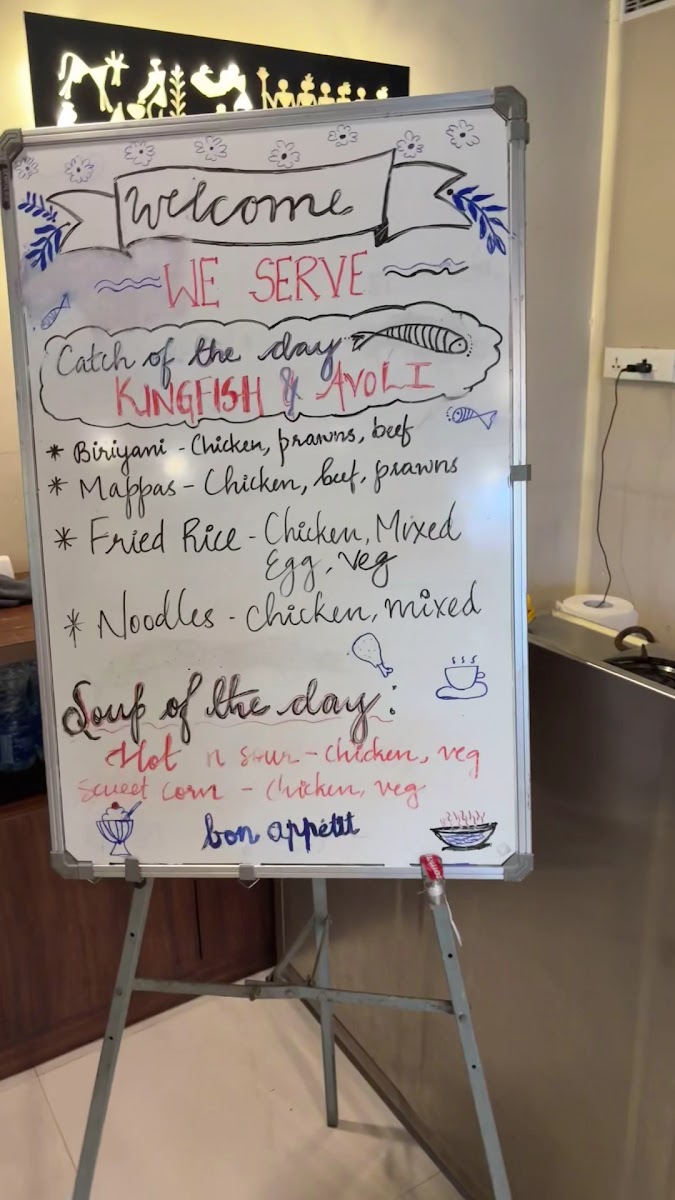 Welcome
WE SERVE
Catch of the day
KINGFISH & AVOLI
* Biriyani - Chicken, prawns, beef
* Mappas - Chicken, beef, prawns
* Fried Rice - Chicken, Mixed
Egg, Veg
* Noodles - chicken, mixed
Soup of the day:
Hot n sour - chicken, veg
Sweet corn - chicken, veg
bon appétit